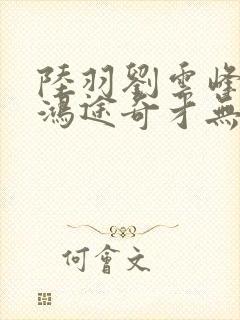 陸羽劉雲峰
鴻途奇才無
何會文